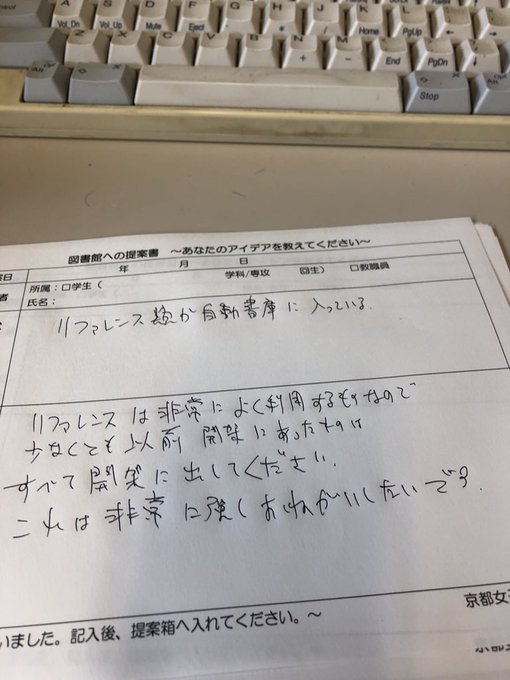 A S D F G H J K L
Vol_Dn Vol_Up Mute Eject Home PgUp
Z X C V B N M
End PgDn
Alt Stop
図書館への提案書 ～あなたのアイデアを教えてください～
年 月 日
所属：□学生（ 学科/専攻 回生） □教職員
者 氏名：
リファレンス類が自動書庫に入っている.
リファレンスは非常によく利用するものなので
少なくとも以前開架にあったものは
すべて開架に出してください.
これは非常に強くおねがいしたいです.
京都女
いました。記入後、提案箱へ入れてください。～